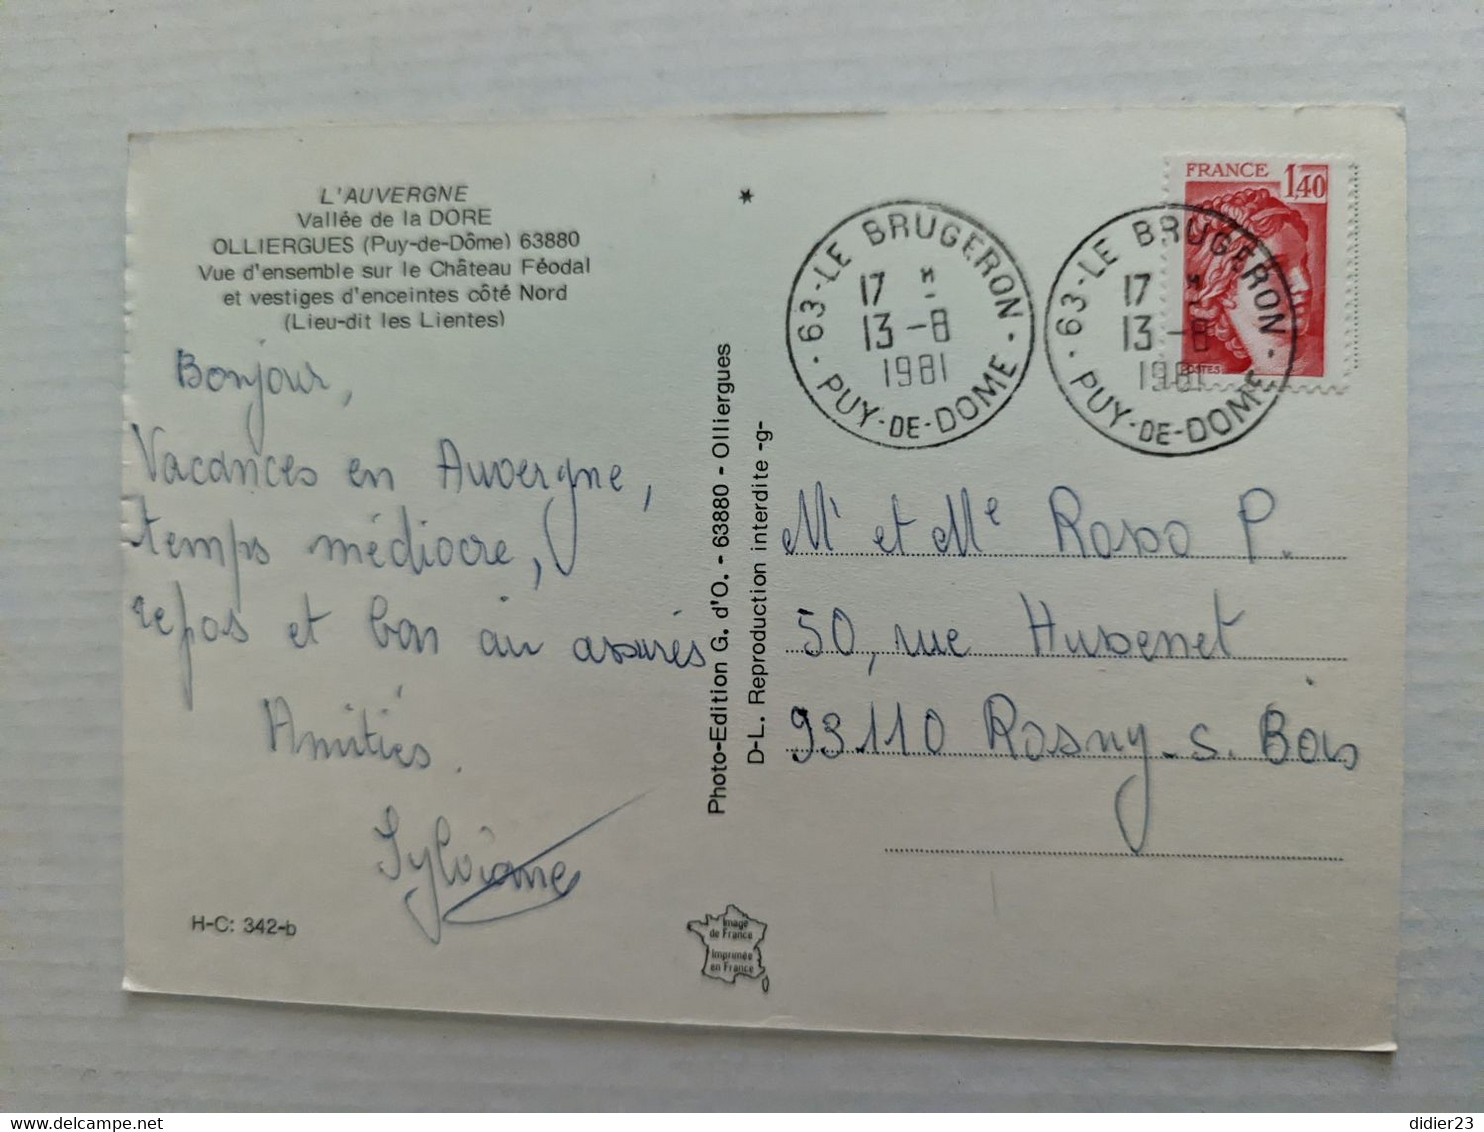 L'AUVERGNE
Vallée de la DORE
OLLIERGUES (Puy-de-Dôme) 63880
Vue d'ensemble sur le Château Féodal
et vestiges d'enceintes côté Nord
(Lieu-dit les Lientes)
Bonjour,
Vacances en Auvergne,
temps médiocre,
repos et bon air assurés
Amitiés.
Sylviane
H-C: 342-b
Photo-Edition G. d'O. - 63880 - Olliergues
D-L. Reproduction interdite -g-
*
63-LE BRUGERON
17 H
13 -8
1981
PUY-DE-DOME
63-LE BRUGERON
17 H
13 -8
1981
PUY-DE-DOME
FRANCE 1,40
POSTES
Mr et Me Rosso P.
50, rue Hussenet
93110 Rosny-s. Bois
Image
de France
Imprimée
en France
didier23